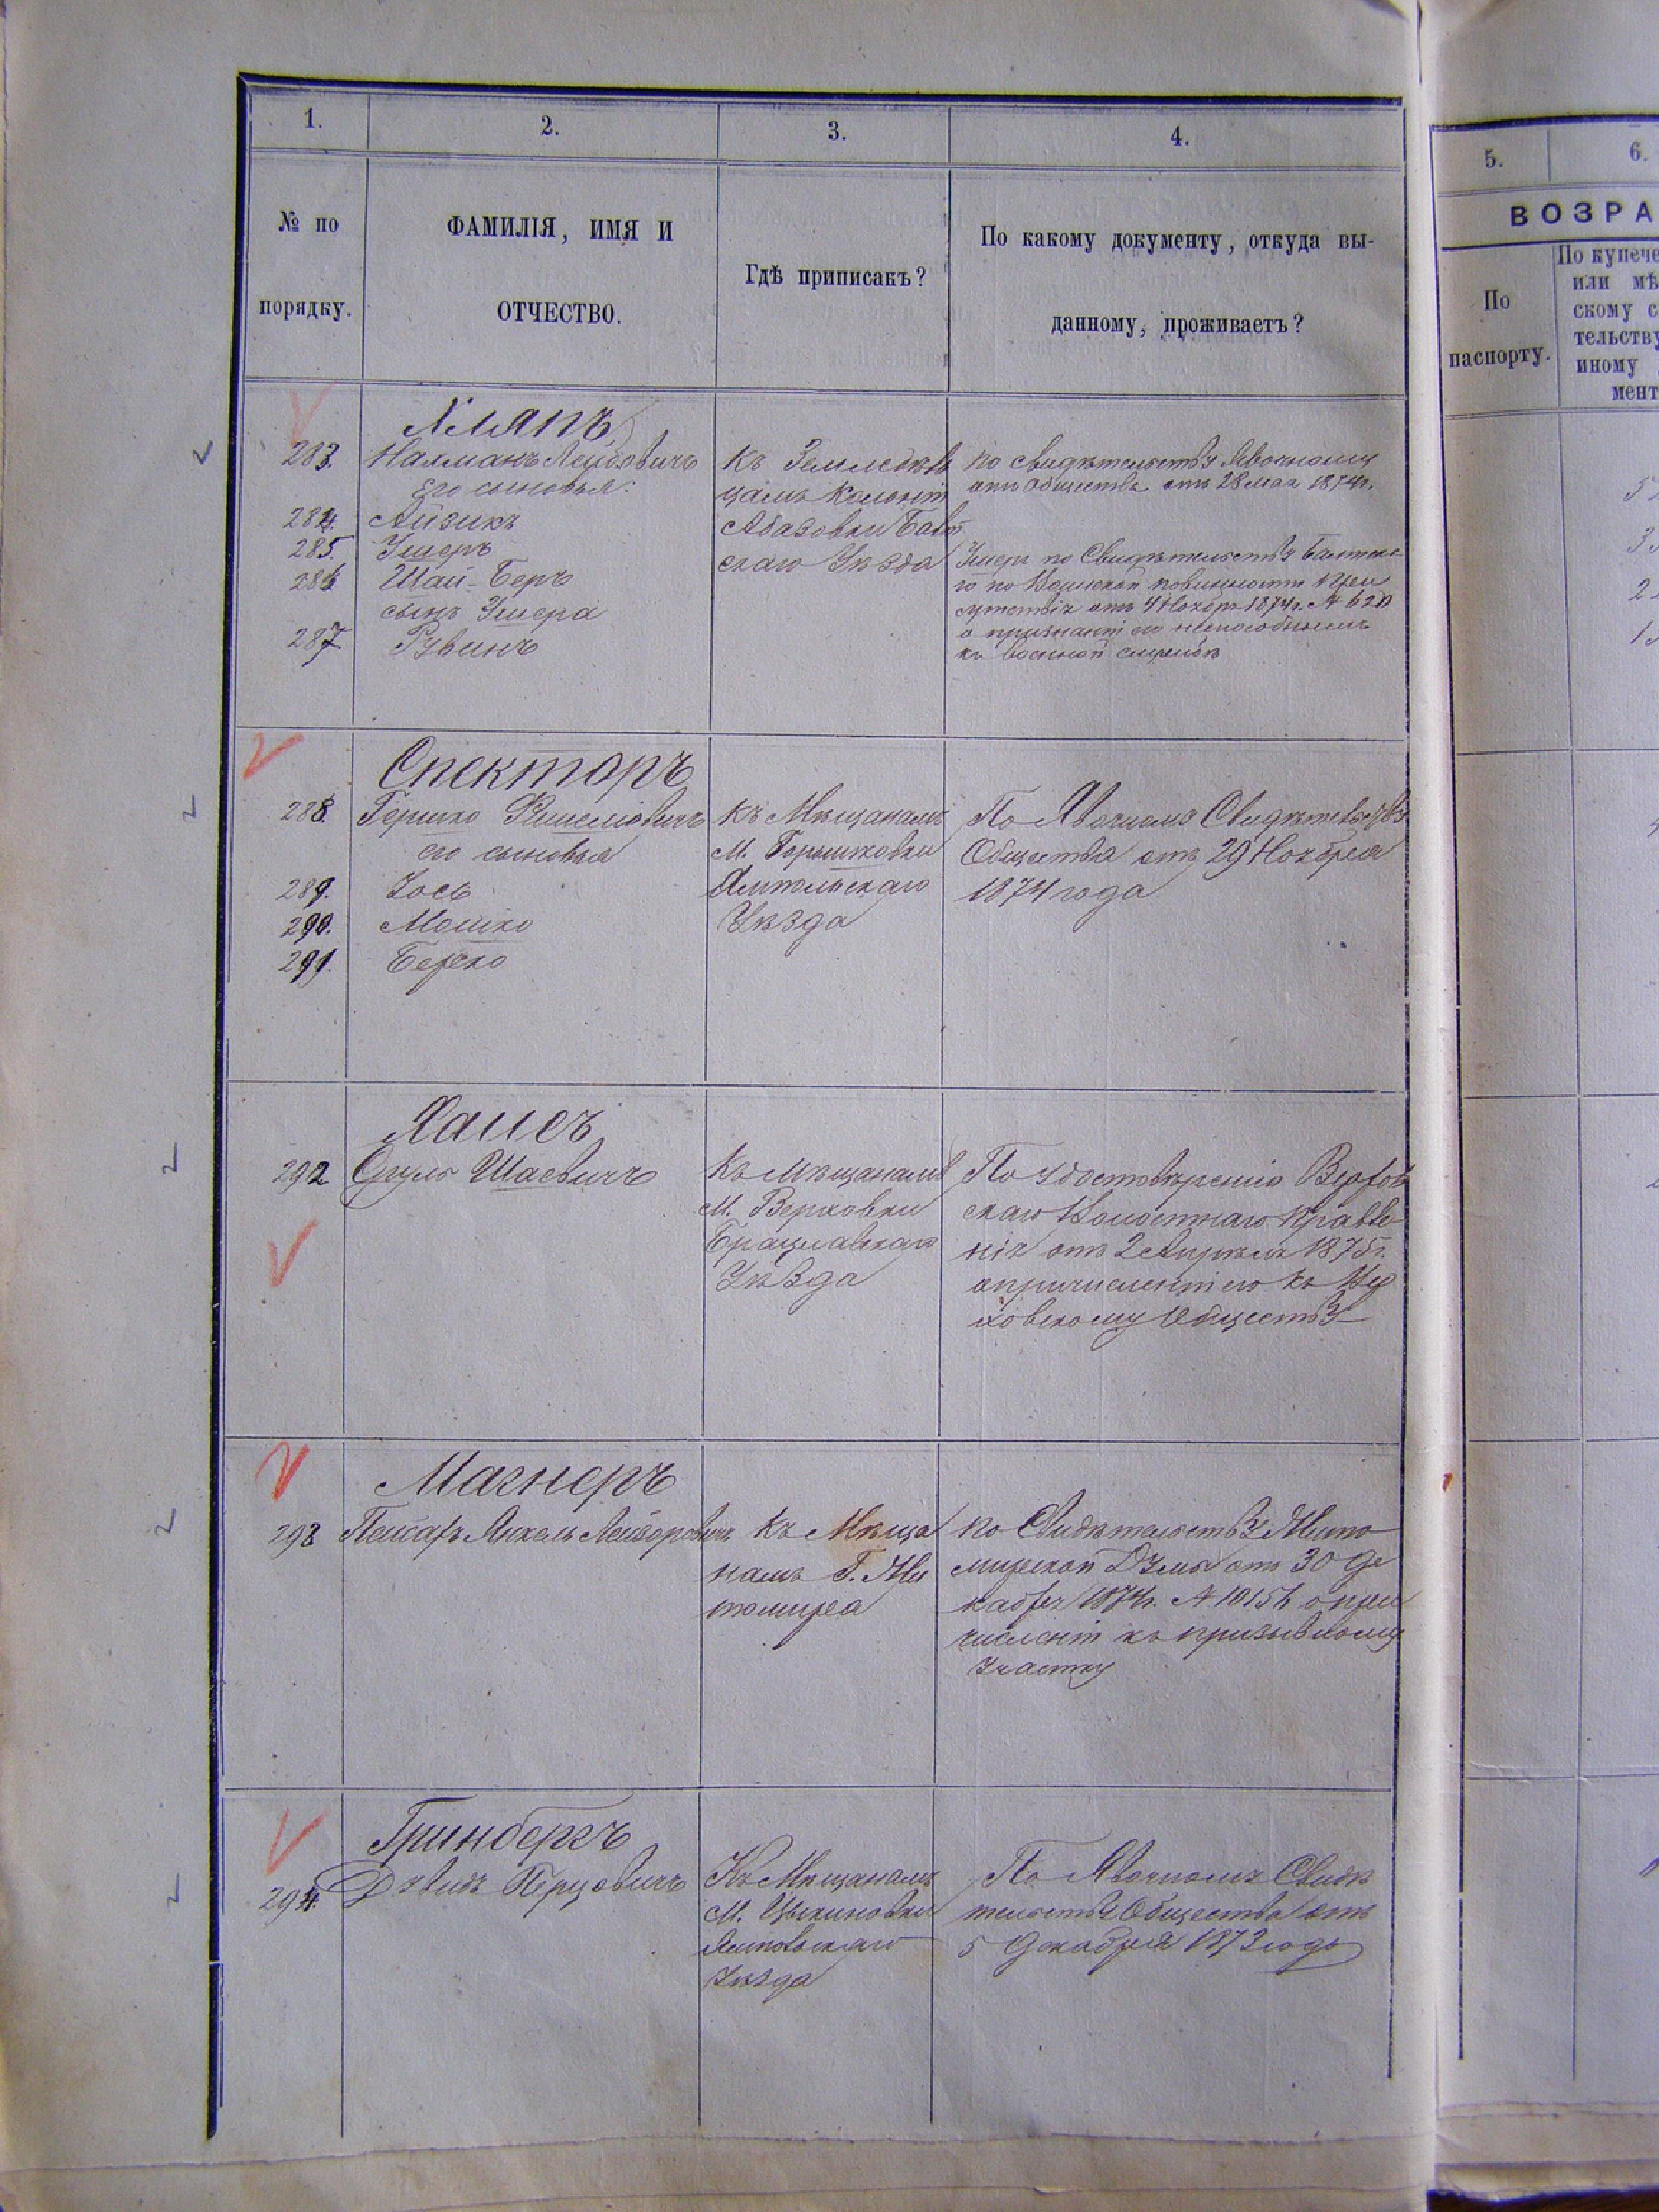 1. 2. 3. 4.
№ по порядку.
ФАМИЛІЯ, ИМЯ И ОТЧЕСТВО.
Гдѣ приписакъ?
По какому документу, откуда вы-
данному, проживаетъ?
283. Нахманъ Лейбовичъ
Его сыновья:
284. Айзикъ
285. Ушеръ
286 Шай-Беръ
сынъ Ушера
287 Рувинъ
Къ Земледѣль
цамъ Колоніи
Абазовки Балт
скаго Уѣзда
по свидѣтельству Явочному
отъ Общества отъ 28 мая 1874 г.
Ушеръ по Свидѣтельству Балтска-
го по Воинской повинности при
сутствія отъ 4 Ноября 1874 г. №
о признаніи его неспособнымъ
къ военной службѣ
Спекторъ
288. Гершко
его сыновья
289. Іось
290. Мошко
291. Берко
Къ Мѣщанамъ
М. Горышковки
Ямпольскаго
Уѣзда
По Явочному Свидѣтельству
Общества отъ 29 Ноября
1874 года
292 Сруль Шаевичъ
Къ Мѣщанамъ
М. Верховки
Брацлавскаго
Уѣзда
По Удостовѣренію Верхов
скаго Волостнаго Правле-
нія отъ 2 Апрѣля 1875 г.
о причисленіи его къ Вер
ховскому Обществу
Магнеръ
293 Янкель Лейзеровичъ
Къ Мѣща
намъ Г. Жи
томира
по Свидѣтельству Жито
мирской Думы отъ 30 Де
кабря 1874 г. № 10156 о при
численіи къ призывному
участку
Гринбергъ
294. Дувидъ Перцовичъ
Къ Мѣщанамъ
М. Цекиновки
Ямпольскаго
Уѣзда
По Явочному Свидѣ
тельству Общества отъ
5 Декабря 1873 года
5. 6.
ВОЗРА
По паспорту.
По купече
или мѣ
скому с
тельству
иному
мент